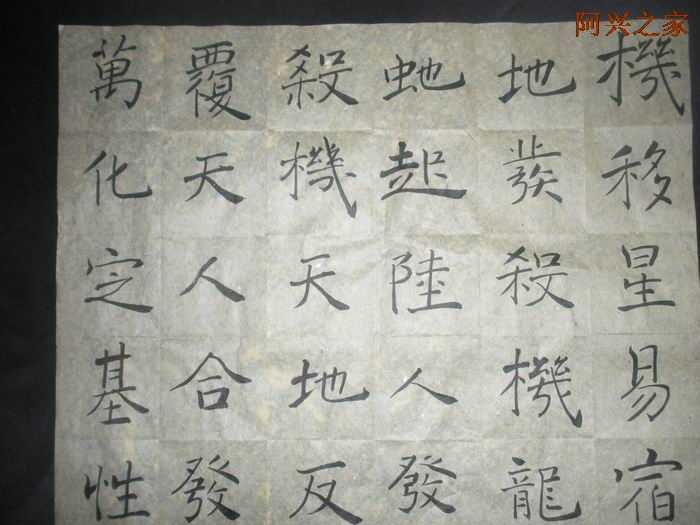 阿兴之家
機移星易宿
地發殺機龍
虵起陸人發
殺機天地反
覆天人合發
萬化定基性